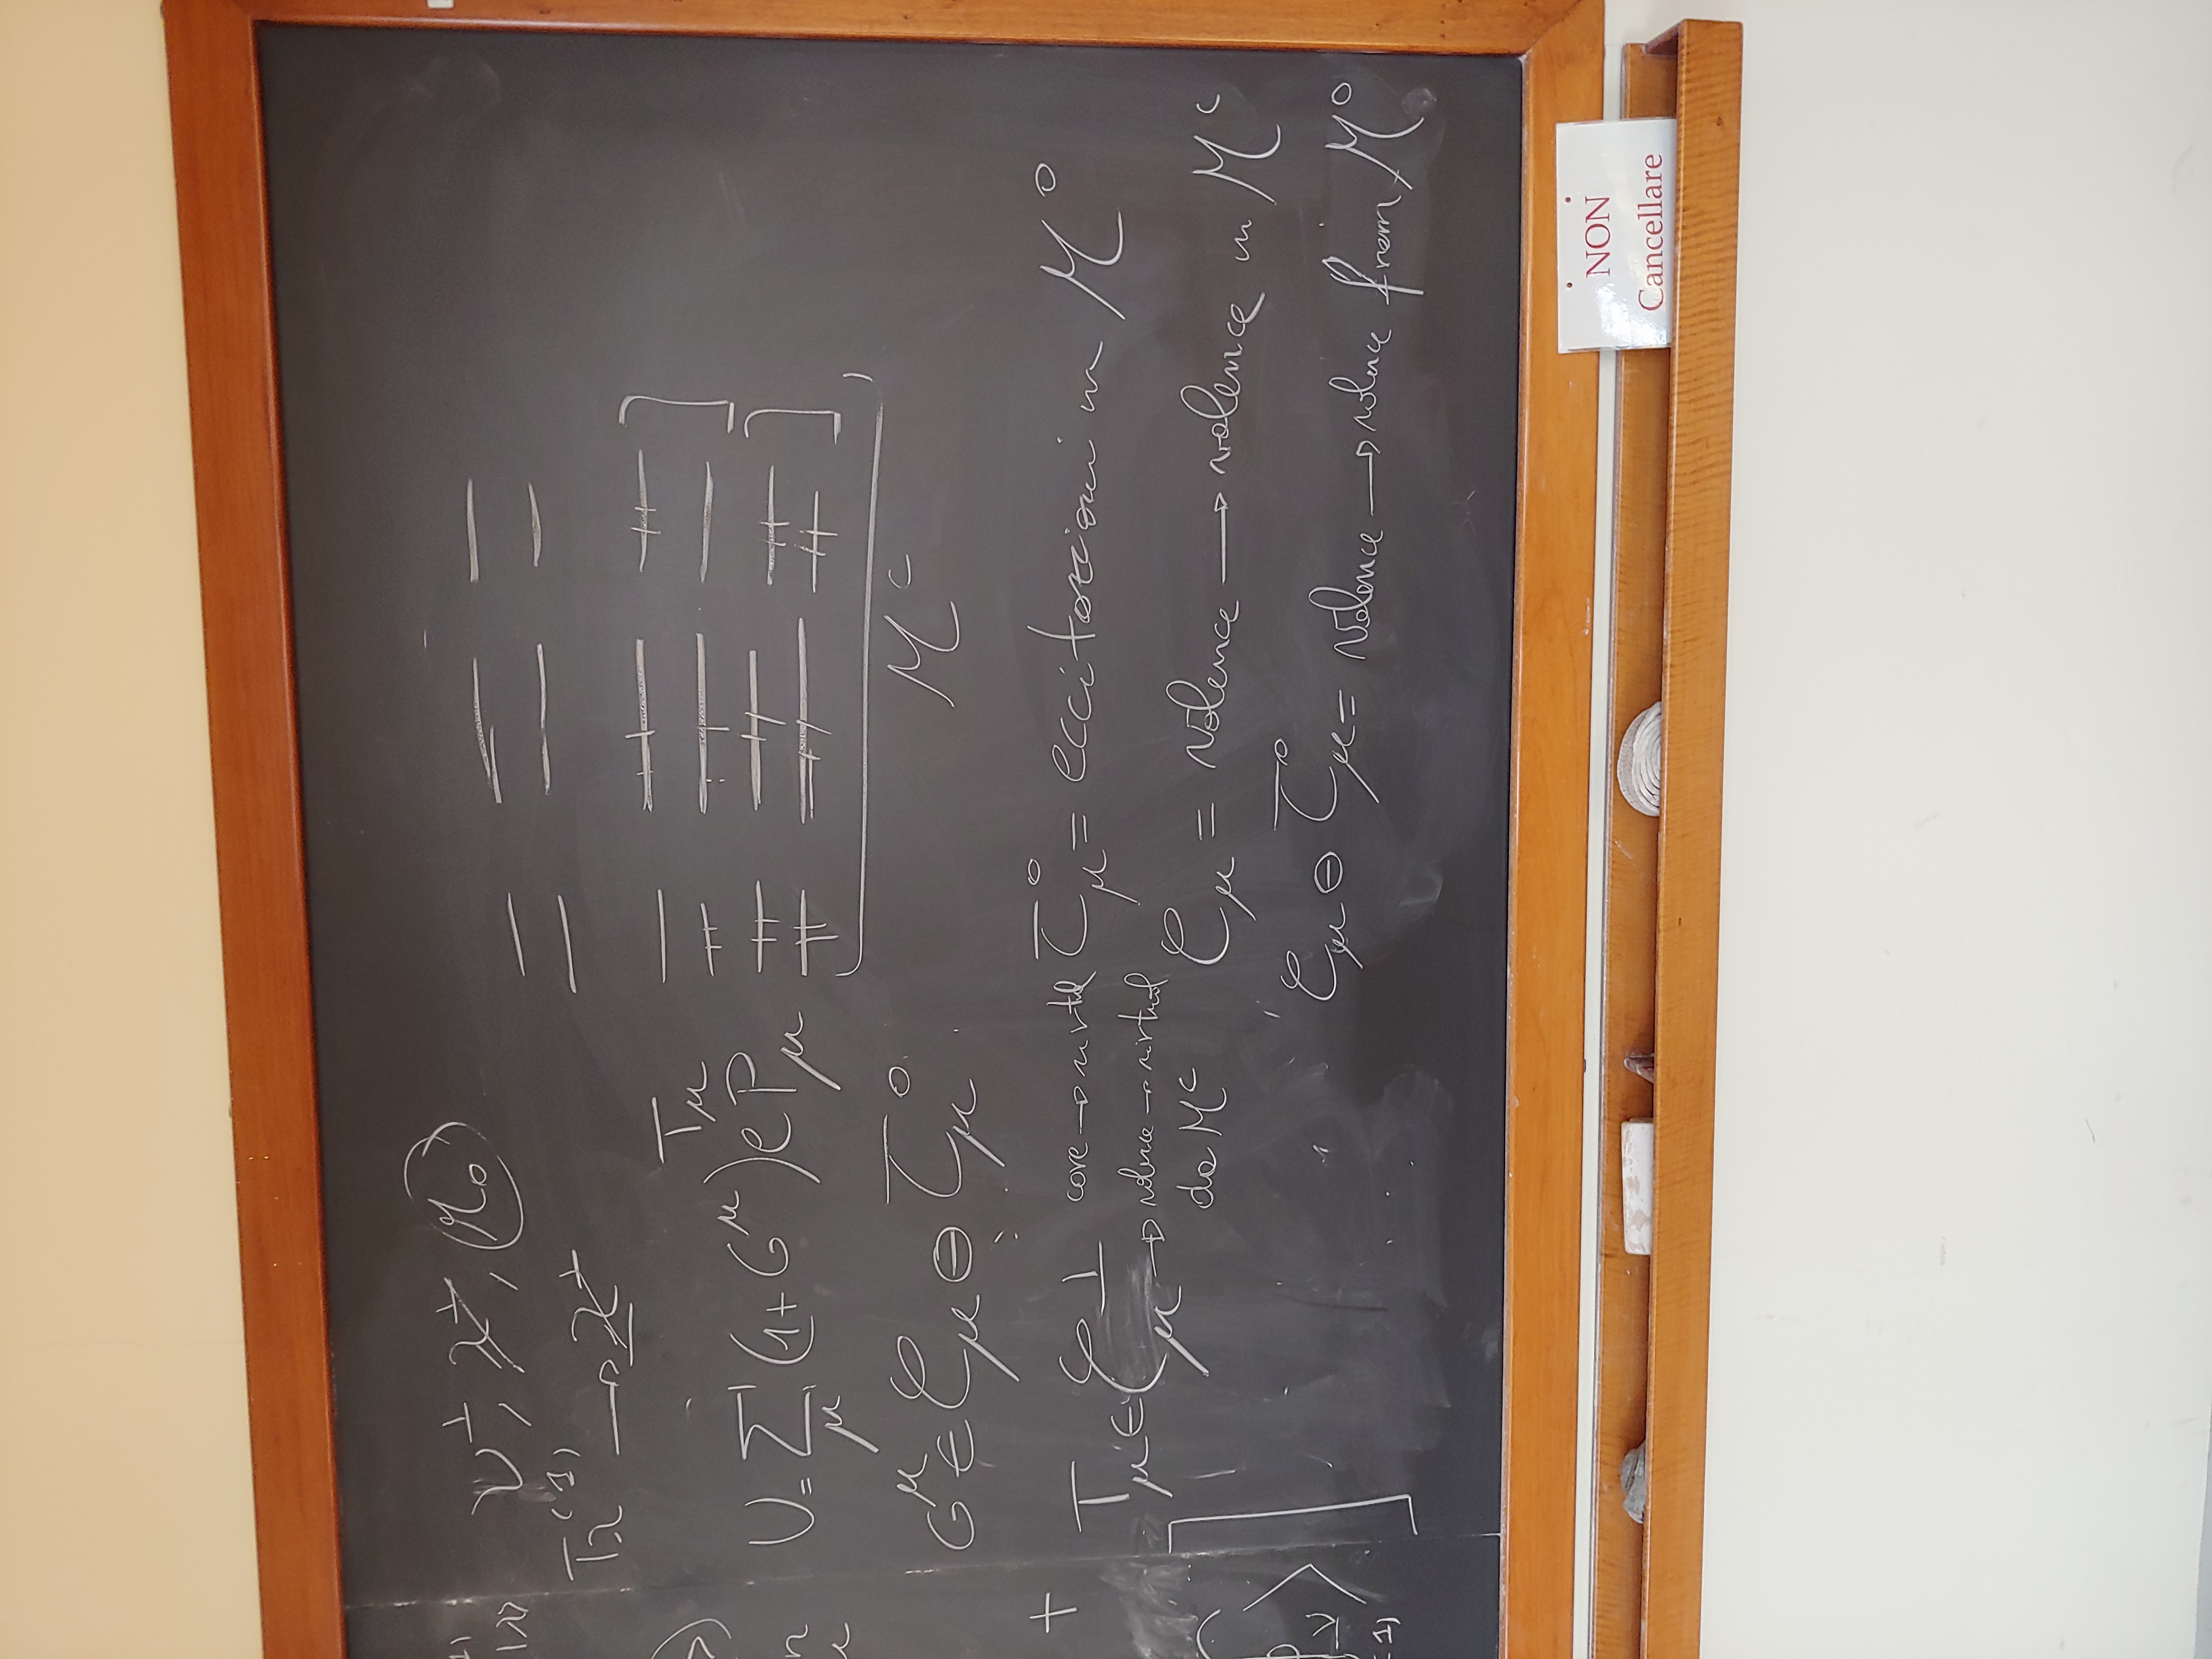 1)
ν⊥, λ⊥, M₀
Tλ⁽¹⁾ → λ⊥
U = Σ_μ (1+G^μ) e^{T_μ} P_μ
M^c
G^μ ∈ C_μ ⊖ T_μ^0
+
T_μ ∈ C_μ^⊥ core → virtual
→ valence → virtual
da M^c
T_μ^0 = eccitazioni in M^0
C_μ = valence → valence in M^c
C_μ ⊖ T_μ^0 = valence → valence from M^0
NON
Cancellare